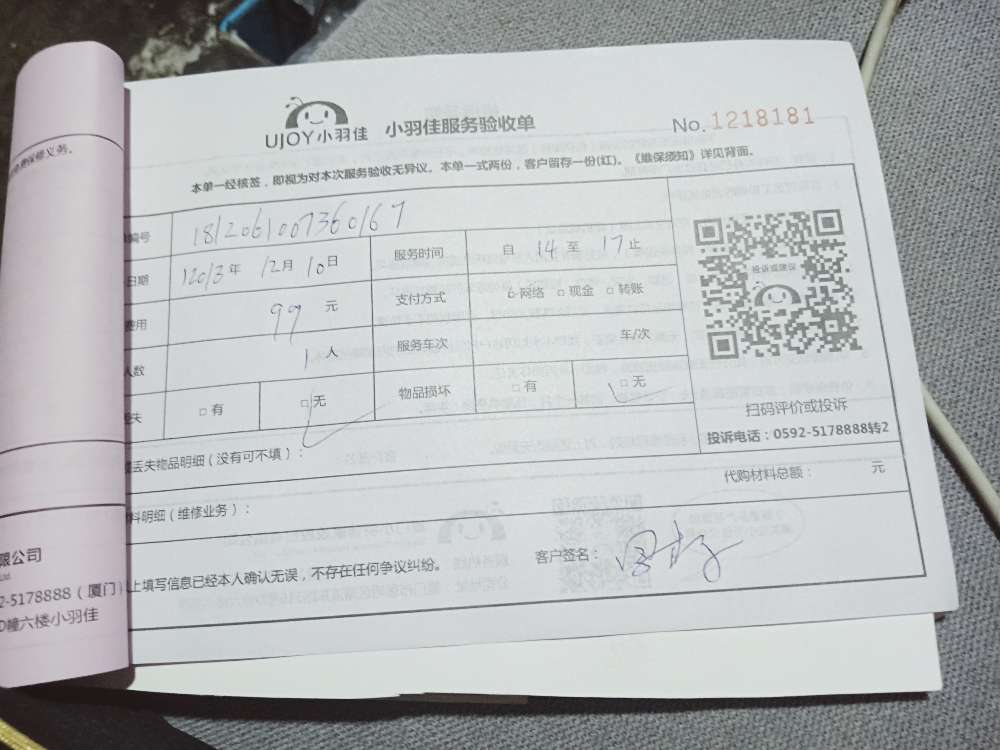 免费保修义务。
UJOY小羽佳 小羽佳服务验收单 No.1218181
本单一经核签，即视为对本次服务验收无异议。本单一式两份，客户留存一份(红)。《维保须知》详见背面。
编号 1812061007360167
日期 12013年 12月 10日 服务时间 自 14 至 17止
费用 99 元 支付方式 □网络 □现金 □转账
人数 1人 服务车次 车/次
丢失 □有 □无 物品损坏 □有 □无
投诉或建议
扫码评价或投诉
投诉电话：0592-5178888转2
丢失物品明细（没有可不填）：
代购材料总额： 元
料明细（维修业务）：
上填写信息已经本人确认无误，不存在任何争议纠纷。
客户签名：
限公司
2-5178888（厦门）
D幢六楼小羽佳